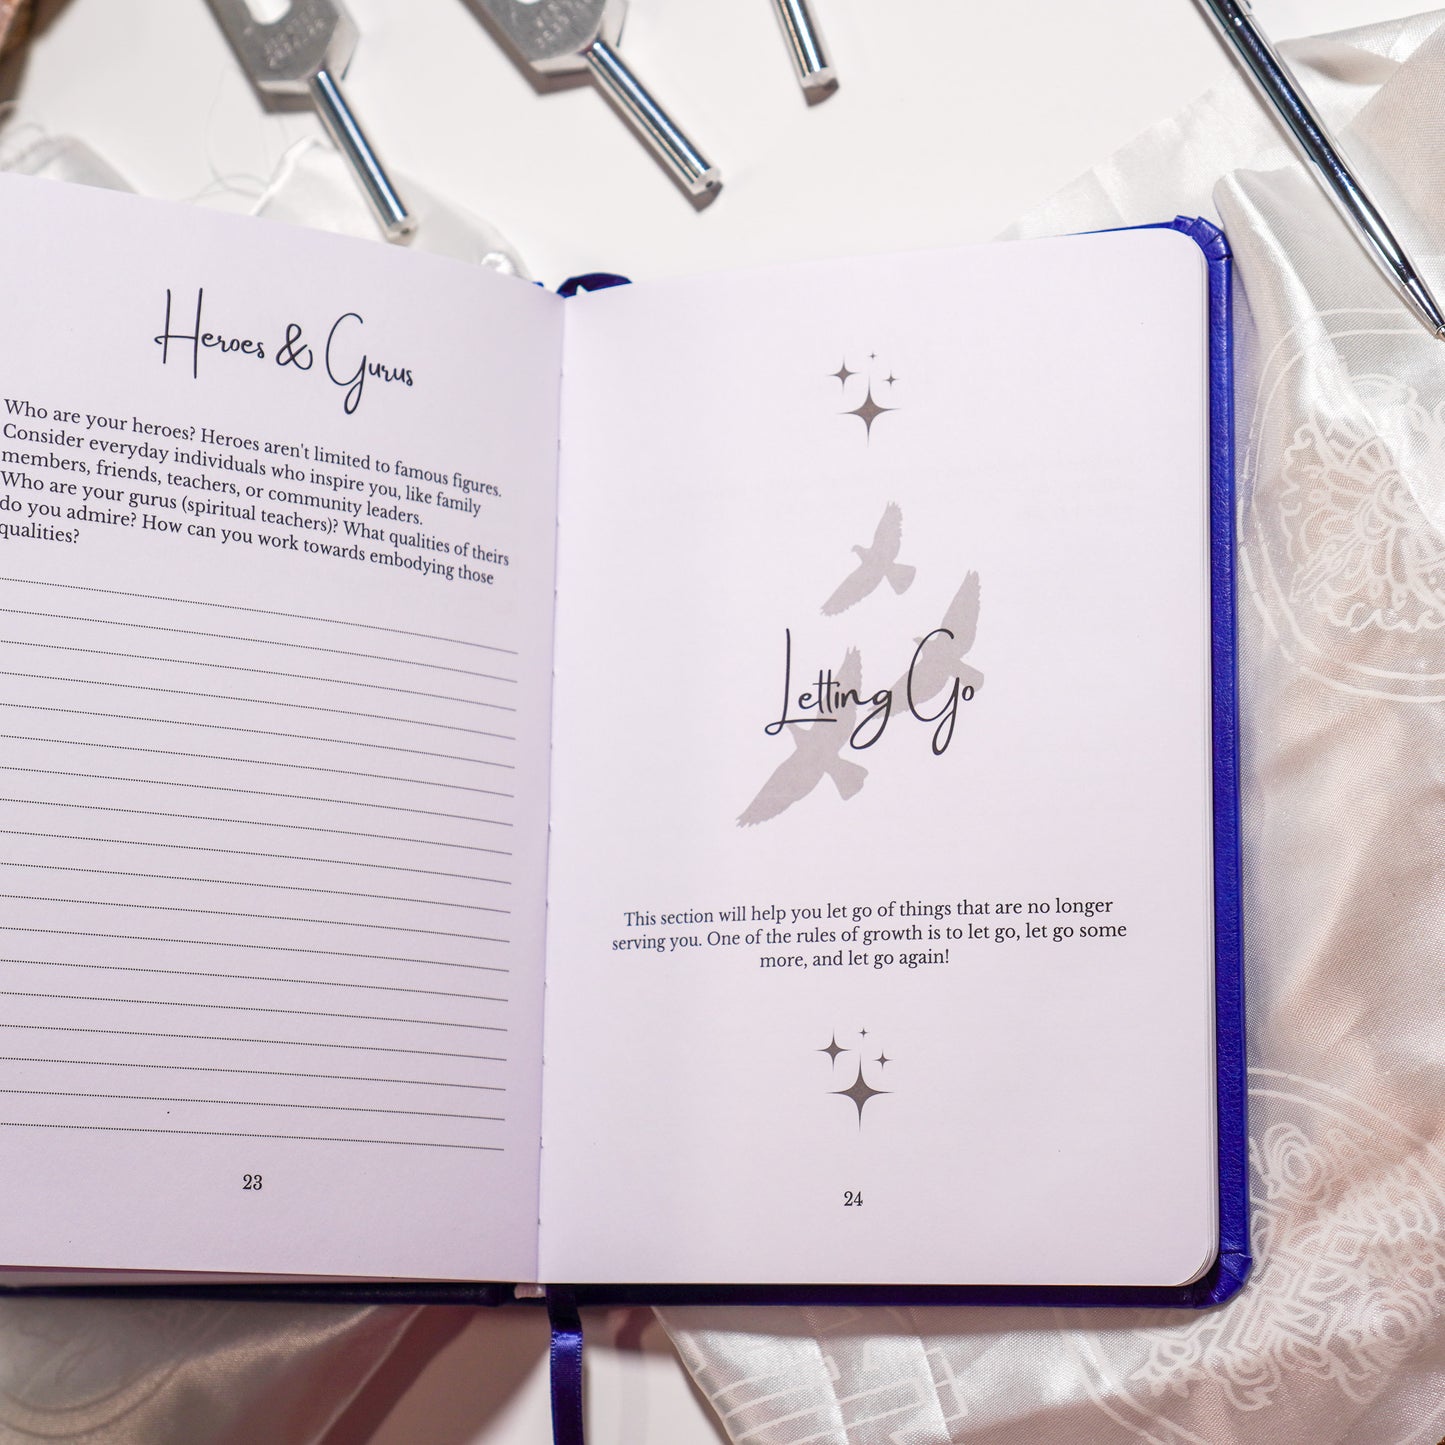 Heroes & Gurus
Who are your heroes? Heroes aren't limited to famous figures.
Consider everyday individuals who inspire you, like family
members, friends, teachers, or community leaders.
Who are your gurus (spiritual teachers)? What qualities of theirs
do you admire? How can you work towards embodying those
qualities?
23
Letting Go
This section will help you let go of things that are no longer
serving you. One of the rules of growth is to let go, let go some
more, and let go again!
24